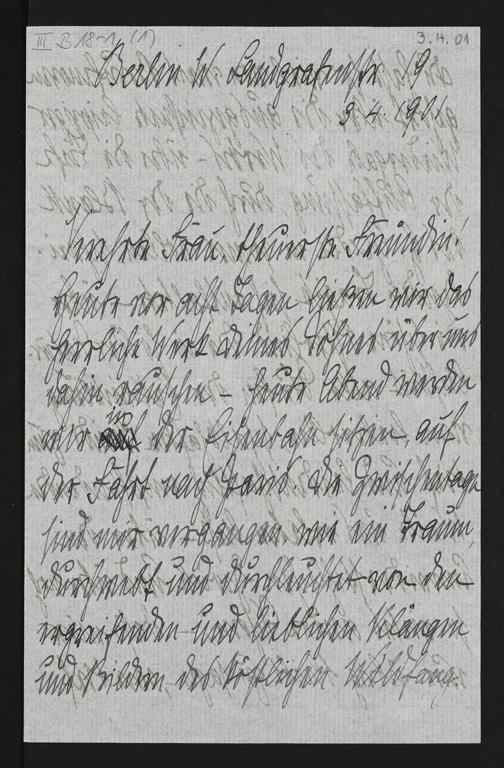 III B 18-1 (1)
3.4.01
Berlin W Landgrafenstr 9
3. 4. 1901
Verehrte Frau, theuerste Freundin!
Heute vor acht Tagen ließen wir das
herrliche Werk Deines Sohnes über uns
dahin rauschen – heute Abend werden
wir in der Eisenbahn sitzen auf
der Fahrt nach Paris. Die Zwischentage
sind mir vergangen wie ein Traum,
durchwebt und durchleuchtet von den
ergreifenden und lieblichen Klängen
und Bildern des köstlichen Wildfang.